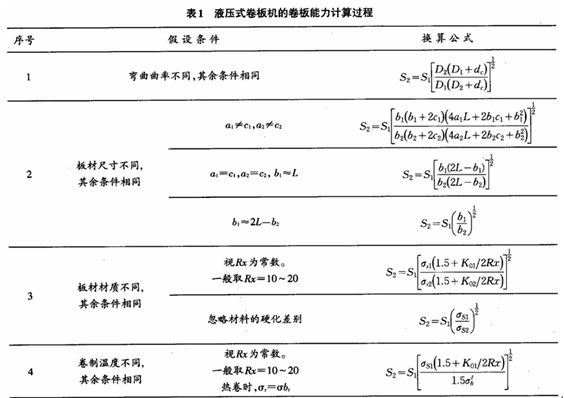 表1 液压式卷板机的卷板能力计算过程
序号 假设条件 换算公式
1 弯曲曲率不同,其余条件相同 S₂=S₁[D₂(D₁+d꜀)/D₁(D₂+d꜀)]^½
2 板材尺寸不同,其余条件相同
a₁≠c₁,a₂≠c₂ S₂=S₁[b₁(b₁+2c₁)(4a₁L+2b₁c₁+b₁²)/b₂(b₂+2c₂)(4a₂L+2b₂c₂+b₂²)]^½
a₁=c₁,a₂=c₂, b₁≈L S₂=S₁[b₁(2L-b₁)/b₂(2L-b₂)]^½
b₁≈2L-b₂ S₂=S₁(b₁/b₂)^½
3 板材材质不同,其余条件相同
视Rx为常数。
一般取Rx=10~20 S₂=S₁[σₛ₁(1.5+K₀₁/2Rx)/σₛ₂(1.5+K₀₂/2Rx)]^½
忽略材料的硬化差别 S₂=S₁(σS1/σS2)^½
4 卷制温度不同,其余条件相同
视Rx为常数。
一般取Rx=10~20
热卷时,σₛ=σbₜ S₂=S₁[σS1(1.5+K₀₁/2Rx)/1.5σ]^½